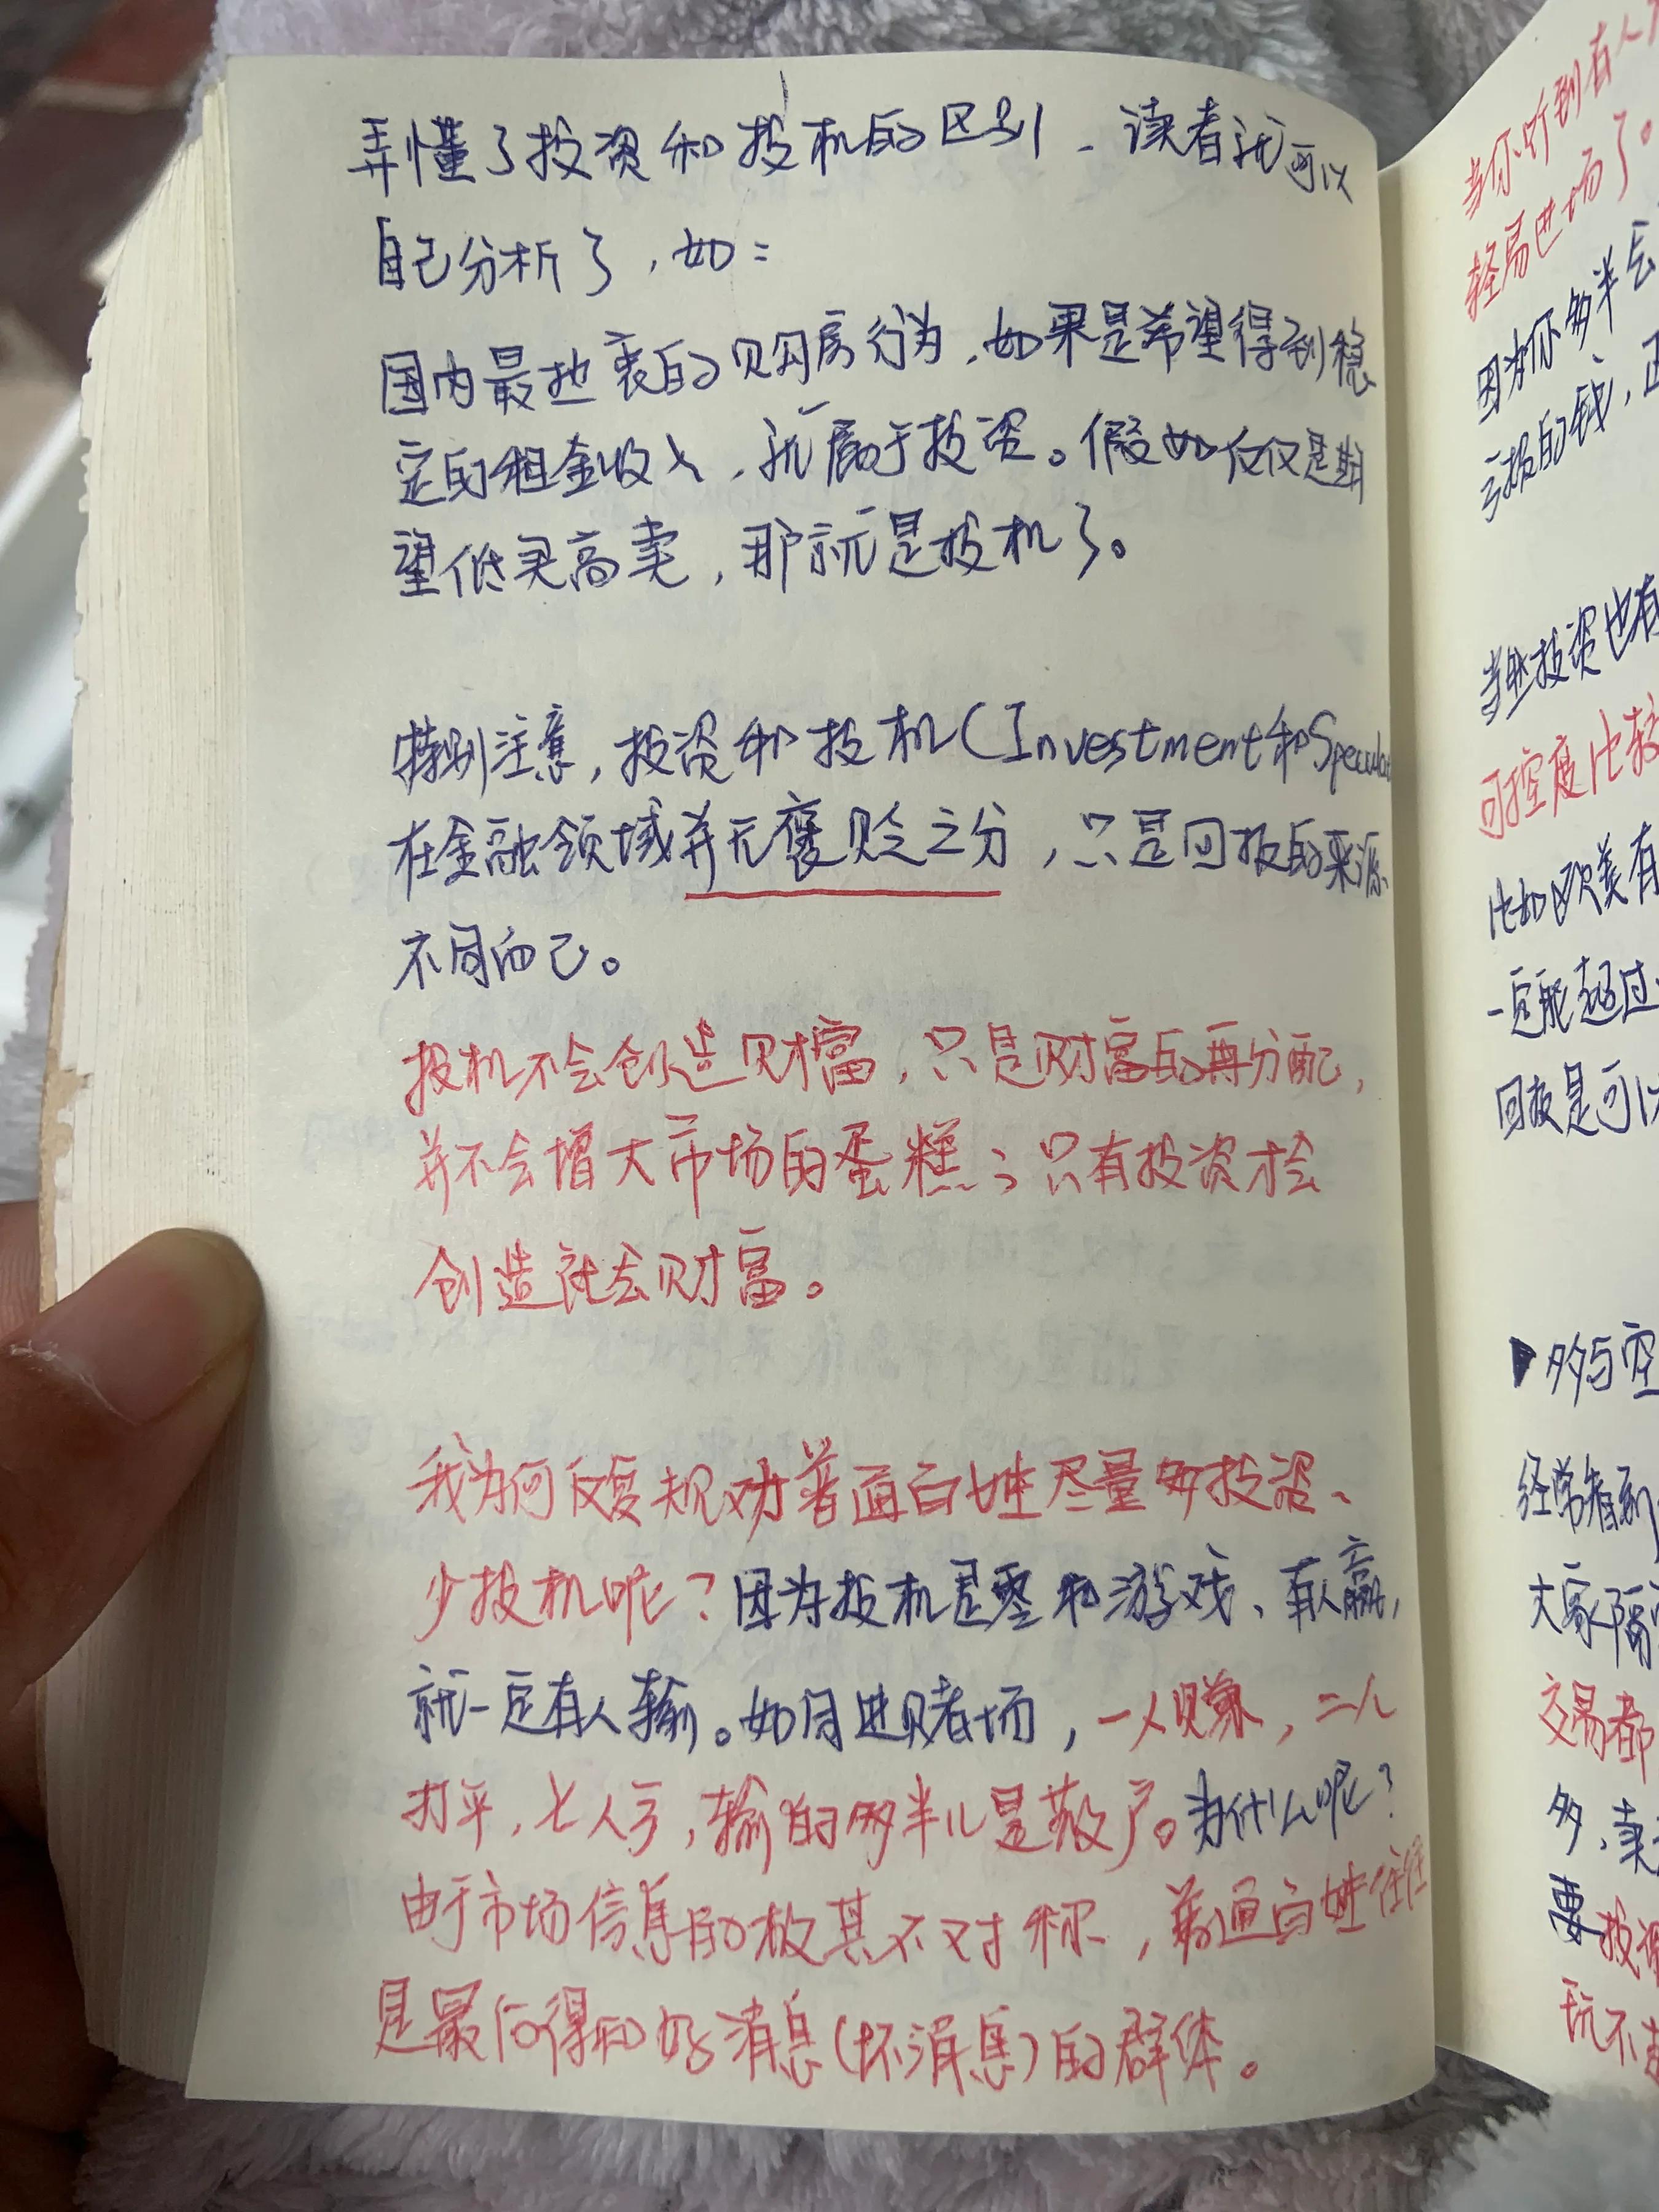 弄懂了投资和投机的区别、读者就可以
自己分析了，如：
国内最热衷的购房行为，如果是希望得到稳
定的租金收入，就属于投资。假如仅仅是期
望低买高卖，那就是投机了。
特别注意，投资和投机(Investment和Specula
在金融领域并无褒贬之分，只是回报的来源
不同而已。
投机不会创造财富，只是财富的再分配，
并不会增大市场的蛋糕；只有投资才会
创造社会财富。
我为何反复规劝普通百姓尽量多投资、
少投机呢？因为投机是零和游戏、有人赢，
就一定有人输。如同进赌场，一人赚，二人
打平，七人亏，输的多半儿是散户。为什么呢？
由于市场信息的极其不对称，普通百姓往往
是最后得知好消息(坏消息)的群体。
当你听到有人
轻易进场了。
因为你多半会
亏损的钱，正
当然投资也有
可控度比较
比如欧美有
一定能超过
回报是可以
▶多与空
经常看到
大家隔
交易都
多，卖
要投
玩不